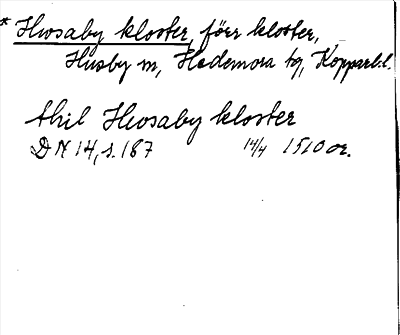 * Husaby kloster, förr kloster,
Husby sn, Hedemora tg, Kopparb.l.
thil Husaby kloster
DN 14, s. 187 14/4 1510 or.